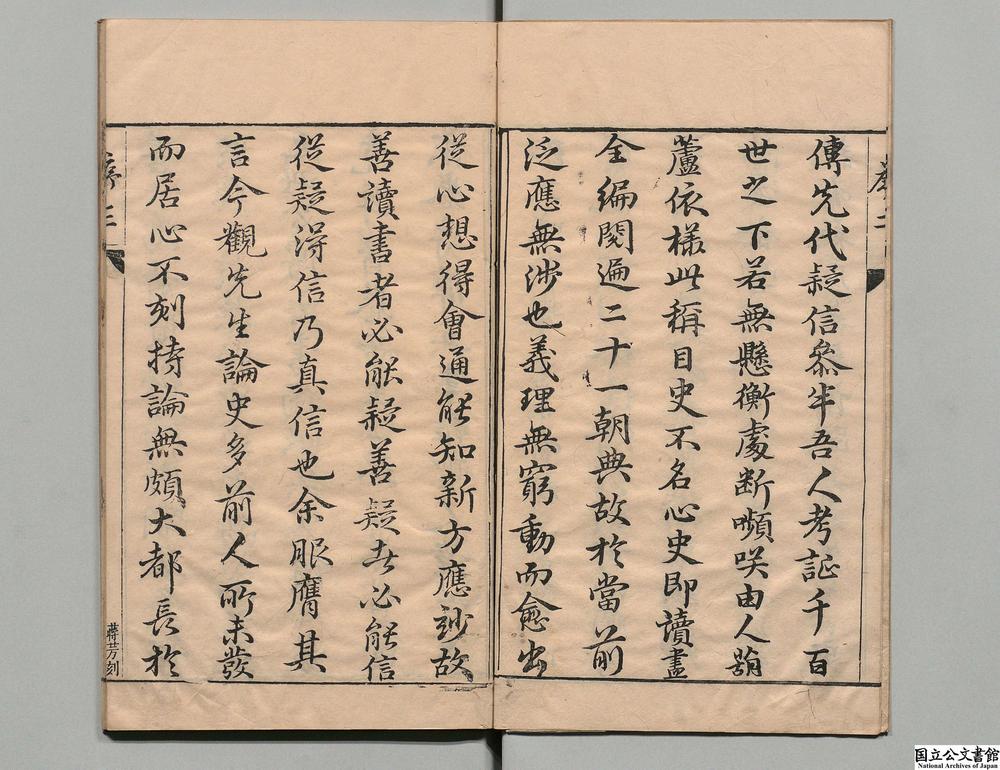 傳先代疑信叅半吾人考証千百
世之下若無懸衡處断嚬咲由人葫
蘆依樣此稱目史不名心史即讀盡
全編閱遍二十一朝典故於當前
泛應無涉也義理無窮動而愈出
從心想得會通能知新方應妙故
善讀書者必能疑善疑者必能信
從疑得信乃真信也余服膺其
言今觀先生論史多前人所未發
而居心不刻持論無頗大都長於
序三
蔣芳刻
国立公文書館
National Archives of Japan